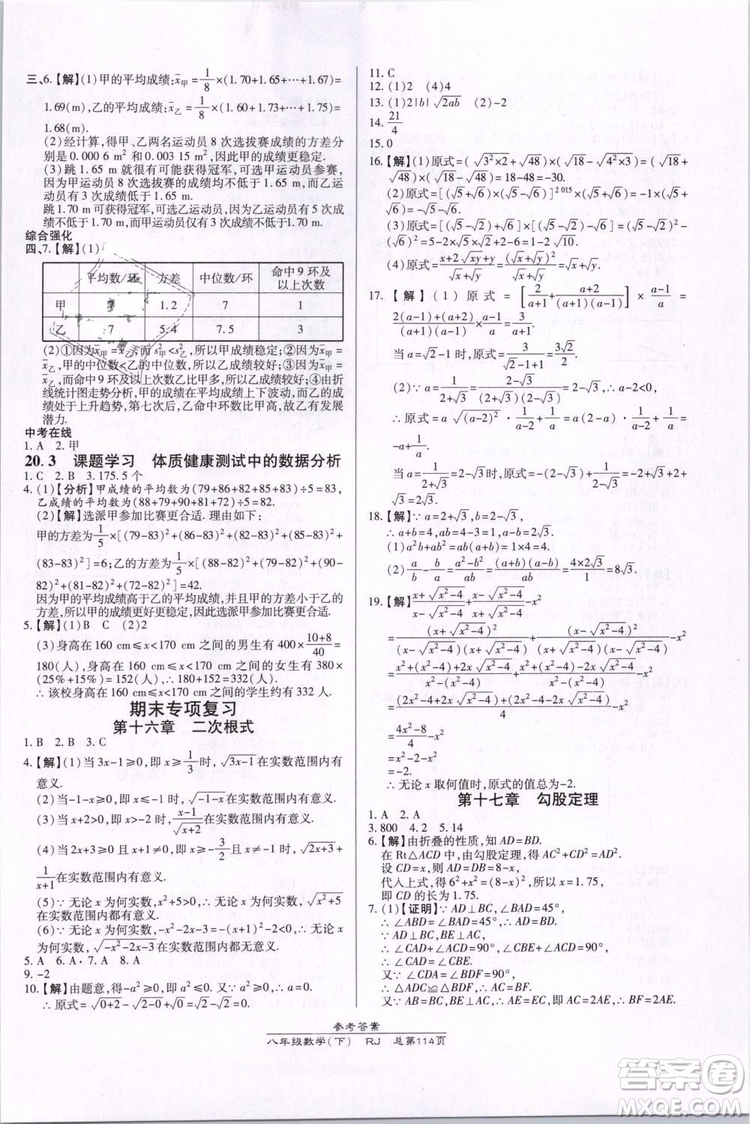 三、6.【解】(1)甲的平均成绩:x̄甲=1/8×(1.70+1.65+…+1.67)=
1.69(m),乙的平均成绩:x̄乙=1/8×(1.60+1.73+…+1.75)=
1.68(m).
(2)经计算,得甲、乙两名运动员8次选拔赛成绩的方差分
别是0.000 6 m²和0.003 15 m²,因此甲的成绩稳定.
(3)跳1.65 m可能获得冠军,可能选甲运动员参赛,
因为甲运动员8次成绩都超过1.65 m,而乙运动员有3次
成绩低于1.65 m.
跳1.70 m可能获得冠军,可能选乙运动员,因为甲
运动员8次成绩中有3次超过1.70 m,而乙运动员有5次成
绩超过1.70 m.
综合强化
四、7.【解】(1)
平均数/环 方差 中位数/环 命中9环及以上次数
甲 7 1.2 7 1
乙 7 5.4 7.5 3
(2)①因为x̄甲=x̄乙,s²甲<s²乙,所以甲成绩稳定;②因为x̄甲
=x̄乙,甲的中位数<乙的中位数,所以乙成绩较好;③因为
命中9环及以上次数乙比甲多,所以乙成绩较好;④由折
线统计图走势分析,甲的成绩在平均成绩上下波动,而乙的成
绩处于上升趋势,第七次后,乙命中环数比甲高,所以乙更有
潜力.
中考在线
1. A 2. 甲
20.3 课题学习 体质健康测试中的数据分析
1. C 2. B 3. 175.5个
4. (1)【分析】甲成绩的平均数为(79+86+82+85+83)÷5=83,
乙成绩的平均数为(88+79+90+81+72)÷5=82.
(2)【解】选派甲参加比赛更合适.理由如下:
甲的方差为1/5×[(79-83)²+(86-83)²+(82-83)²+(85-
83)²+(83-83)²]=6;乙的方差为1/5×[(88-82)²+(79-
82)²+(90-82)²+(81-82)²+(72-82)²]=42.
因为甲的平均成绩高于乙的平均成绩,并且甲的方差比乙小,
所以甲的成绩更好更稳定,因此选派甲参加比赛更合适.
5.【解】(1)B C (2)2
(3)身高在160 cm≤x<170 cm之间的男生有400×(10+8)/40=
180(人),身高在160 cm≤x<170 cm之间的女生有380×
(25%+15%)=152(人),180+152=332(人).
∴ 该校身高在160 cm≤x<170 cm之间的学生约有332人.
期末专项复习
第十六章 二次根式
1. B 2. B 3. C
4.【解】(1)当3x-1≥0,即x≥1/3时,√(3x-1)在实数范围内有
意义.
(2)当-1-x≥0,即x≤-1时,√(-1-x)在实数范围内有意义.
(3)当x+2>0,
(4)当2x+3≥0且x+1≠0,即x≥-3/2且x≠-1时,√(2x+3)+
1/(x+1)在实数范围内有意义.
(5)∵ 无论x为何实数,x²+5>0,∴ 无论x为何实数,√(x²+5)在
实数范围内都有意义.
(6)∵ 无论x为何实数,-x²-2x-3=-(x+1)²-2<0,∴ 无
论x为何实数,√(-x²-2x-3)在实数范围内都无意义.
5. A 6. A 7. A 8. A
9. -2
10.【解】由题意,得-a²≥0,∴ a²≤0.又∵ a²≥0,∴ a²=0,∴ a=
0.∴ 原式=√(0+2)-√(2-0)+0=√2-√2=0.
11. C
12. (1)(2) (4)(4)
13. (1)2|b|√(2ab) (2)-2
14. 21/4
15. 0
16.【解】(1)原式=(√(3²×2)+√48)×(√18-√(4²×3))=(√18+
√48)×(√18-√48)=18-48=-30.
(2)原式=[(√5+√6)(√5-√6)]^2 015×(√5+√6)=-1×(√5+
√6)=-√5-√6.
(4)原式=(x+2√(xy)+y)/(√x+√y)=(√x+√y)²/(√x+√y)=√x+√y.
17.【解】(1)原式=[2/(a+1)+(a+2)/((a+1)(a-1))]×(a-1)/a=
(2(a-1)+(a+2))/((a+1)(a-1))×(a-1)/a=3/(a+1).
当a=√2-1时,原式=3/(√2-1+1)=3√2/2.
(2)∵ a=2-√3,∴ a-2=-√3<0.
18.【解】∵ a=2+√3,b=2-√3,∴ a+b=4,a-b=2√3,
ab=4-3=1.
19.【解】(x+√(x²-4))/(x-√(x²-4))+(x-√(x²-4))/(x+√(x²-4))-x²
=(x+√(x²-4))²/((x-√(x²-4))(x+√(x²-4)))+(x-√(x²-4))²/((x+√(x²-4))(x-√(x²-4)))-x²
=(4x²-8)/4-x²
=-2.
∴ 无论x取何值时,原式的值总为-2.
第十七章 勾股定理
1. A 2. A
3. 800 4. 2 5. 14
6.【解】由折叠的性质,知AD=BD.
在Rt△ACD中,由勾股定理,得AC²+CD²=AD².
设CD=x,则AD=DB=8-x,
代入上式,得6²+x²=(8-x)²,解得x=1.75,
即CD的长为1.75.
7. (1)【证明】∵ AD⊥BC,∠BAD=45°,
∴ ∠ABD=∠BAD=45°,∴ AD=BD.
∵ AD⊥BC,BE⊥AC,
∴ ∠CAD+∠ACD=90°,∠CBE+∠ACD=90°,
∴ ∠CAD=∠CBE.
又∵ ∠CDA=∠BDF=90°,
∴ △ADC≌△BDF(ASA),∴ AC=BF.
∵ AB=BC,BE⊥AC,∴ AC=2AE,∴ BF=2AE.
参考答案
八年级数学(下) RJ 总第114页
答案圈
MXQE.COM